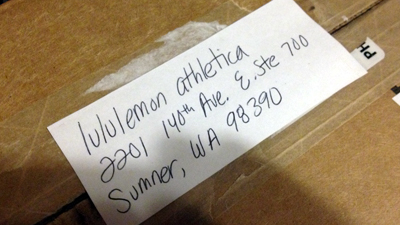 lululemon athletica
2201 140th Ave. E. Ste 700
Sumner, WA 98390
PH